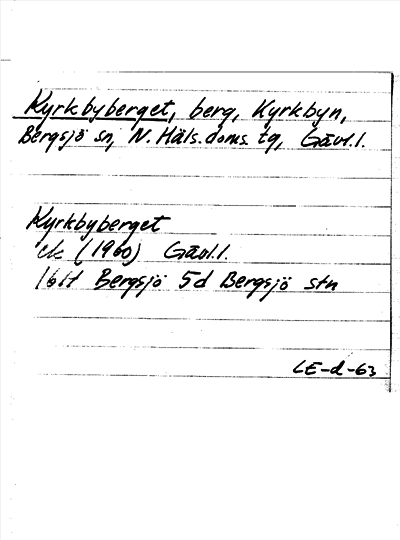 Kyrkbyberget, berg, Kyrkbyn,
Bergsjö sn, N. Häls. doms. tg, Gävl.l.
Kyrkbyberget
ek (1960) Gävl.l.
16H Bergsjö 5d Bergsjö stn
LE-d-63